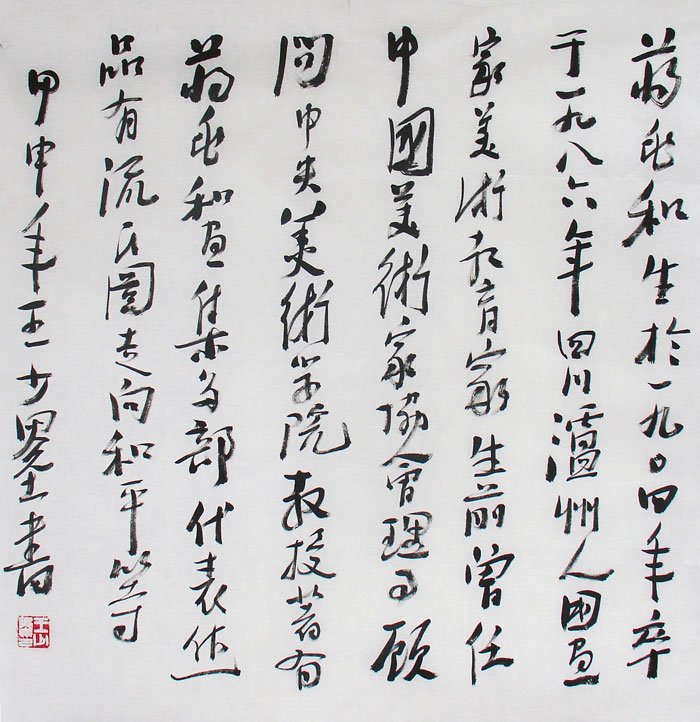 蒋兆和生於一九〇四年卒
于一九八六年四川瀘州人國画
家美術教育家生前曾任
中國美術家協會理事顾
問中央美術学院教授著有
蒋兆和画集多部代表作
品有流民圖走向和平等
甲申年王少書